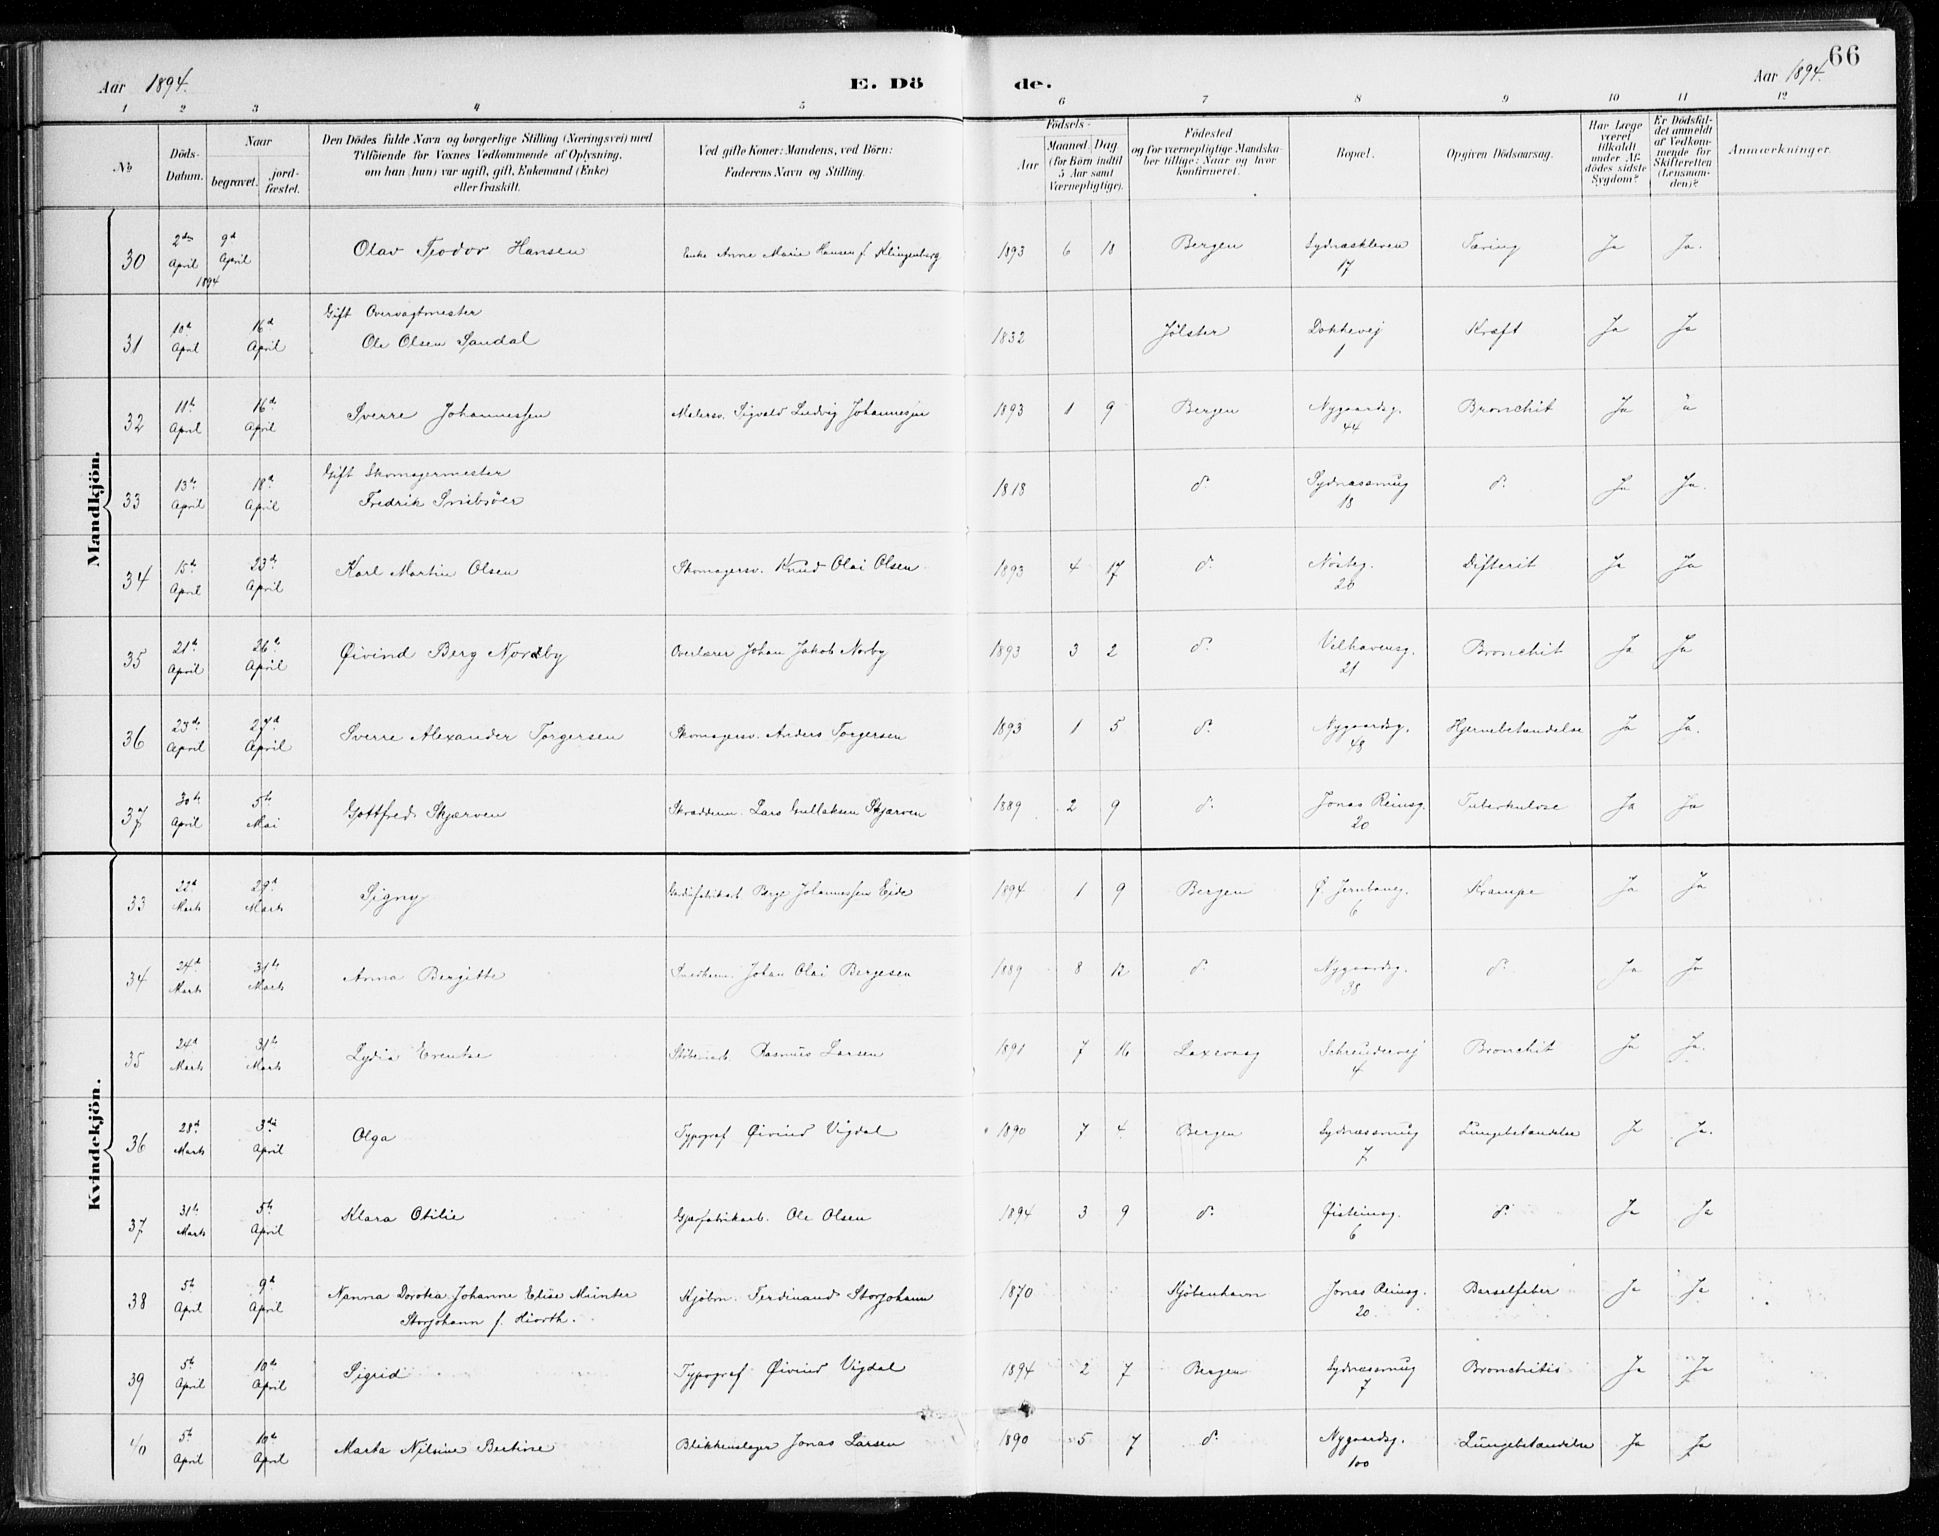 66
Aar 1894. E. Dö de. Aar 1894.
1 2 3 4 5 6 7 8 9 10 11 12
No. Döds-Datum. Naar begravet. jordfæstet. Den Dödes fulde Navn og borgerlige Stilling (Næringsvei) med Tilföiende for Voxnes Vedkommende af Oplysning, om han (hun) var ugift, gift, Enkemand (Enke) eller fraskilt. Ved gifte Koner: Mandens, ved Börn: Faderens Navn og Stilling. Födsels- Aar Maaned. Dag (for Börn indtil 5 Aar samt Værnepligtige). Födested og for værnepligtige Mandskaber tillige: Naar og hvor konfirmeret. Bopæl. Opgiven Dödsaarsag. Har Læge været tilkaldt under Afdödes sidste Sygdom? Er Dödsfaldet anmeldt af Vedkommende for Skifteretten (Lensmanden)? Anmærkninger.
Mandkjön.
30 2den April 9d April 1894 Olav Teodor Hansen Enke Anne Marie Hansen f. Klingenberg 1893 6 18 Bergen Sydnæskleven 17 Tæring Ja Ja.
31 10d April 16d April Gift Overvagtmester
Ole Olsen Sandal 1832 Jølster Dokkevej 1 Kræft Ja Ja
32 11te April 16d April Sverre Johannessen Malersv. Sigvald Ludvig Johannesen 1893 1 9 Bergen Nygaardsg. 44 Bronchit Ja
33 13de April 18d April Gift Skomagermester
Fredrik Snibsøer 1818 do Sydnæssmug 18 do Ja Ja.
34 15d April 23de April Karl Martin Olsen Skomagersv. Knud Olai Olsen 1893 4 17 do Nøsteg. 20 Difterit Ja Ja
35 21de April 26de April Øivind Berg Nordby Overlærer Johan Jakob Norby 1893 3 2 do Vilhavensg. 21 Bronchit Ja Ja
36 23de April 27d April Sverre Alexander Torgersen Skomagersv. Anders Torgersen 1893 1 5 do Nygaardsg. 48 Hjernebetændelse Ja Ja.
37 30te April 5te Mai Gottfred Skjærven Skræddem. Lars Gullaksen Skjærven 1889 2 9 do Jonas Reinsg. 20 Tuberkulose Ja Ja
Kvindekjön.
33 22d Marts 29d Marts Signy Berge Johannessen Eide 1894 1 9 Bergen Ø. Jernbaneg. 6 Krampe Ja Ja
34 24d Marts 31te Marts Anna Bergitte Snedkerm. Johan Olai Bergesen 1889 8 12 do Nygaardsg. 38 do Ja Ja
35 24d Marts 31te Marts Lydia Erentse Støberiarb. Rasmus Larsen 1891 7 16 Laxevaag Schreudervej 4 Bronchit Ja Ja.
36 28d Marts 3die April Olga Typograf Øivind Vigdal 1890 7 4 Bergen Sydnæssmug 7 Lungebetændelse Ja Ja.
37 31te Marts 5te April Klara Otilie Gjærfabrikarb. Ole Olsen 1894 3 9 do Øisteinsg. 6 do Ja Ja
38 5te April 9d April Nanna Dorotea Johanne Elise Münter
Storjohann f. Hiorth. Kjøbm. Ferdinand Storjohann 1870 Kjøbenhavn Jonas Reinsg. 20 Barselfeber Ja Ja
39 5te April 10de April Sigrid Typograf Øivind Vigdal 1894 2 7 Bergen Sydnæssmug 7 Bronchitis Ja Ja
40 5te April 10de April Marta Nilsine Bertine Blikkenslager Jonas Larsen 1890 5 7 do Nygaardsg. 100 Lungebetændelse Ja Ja